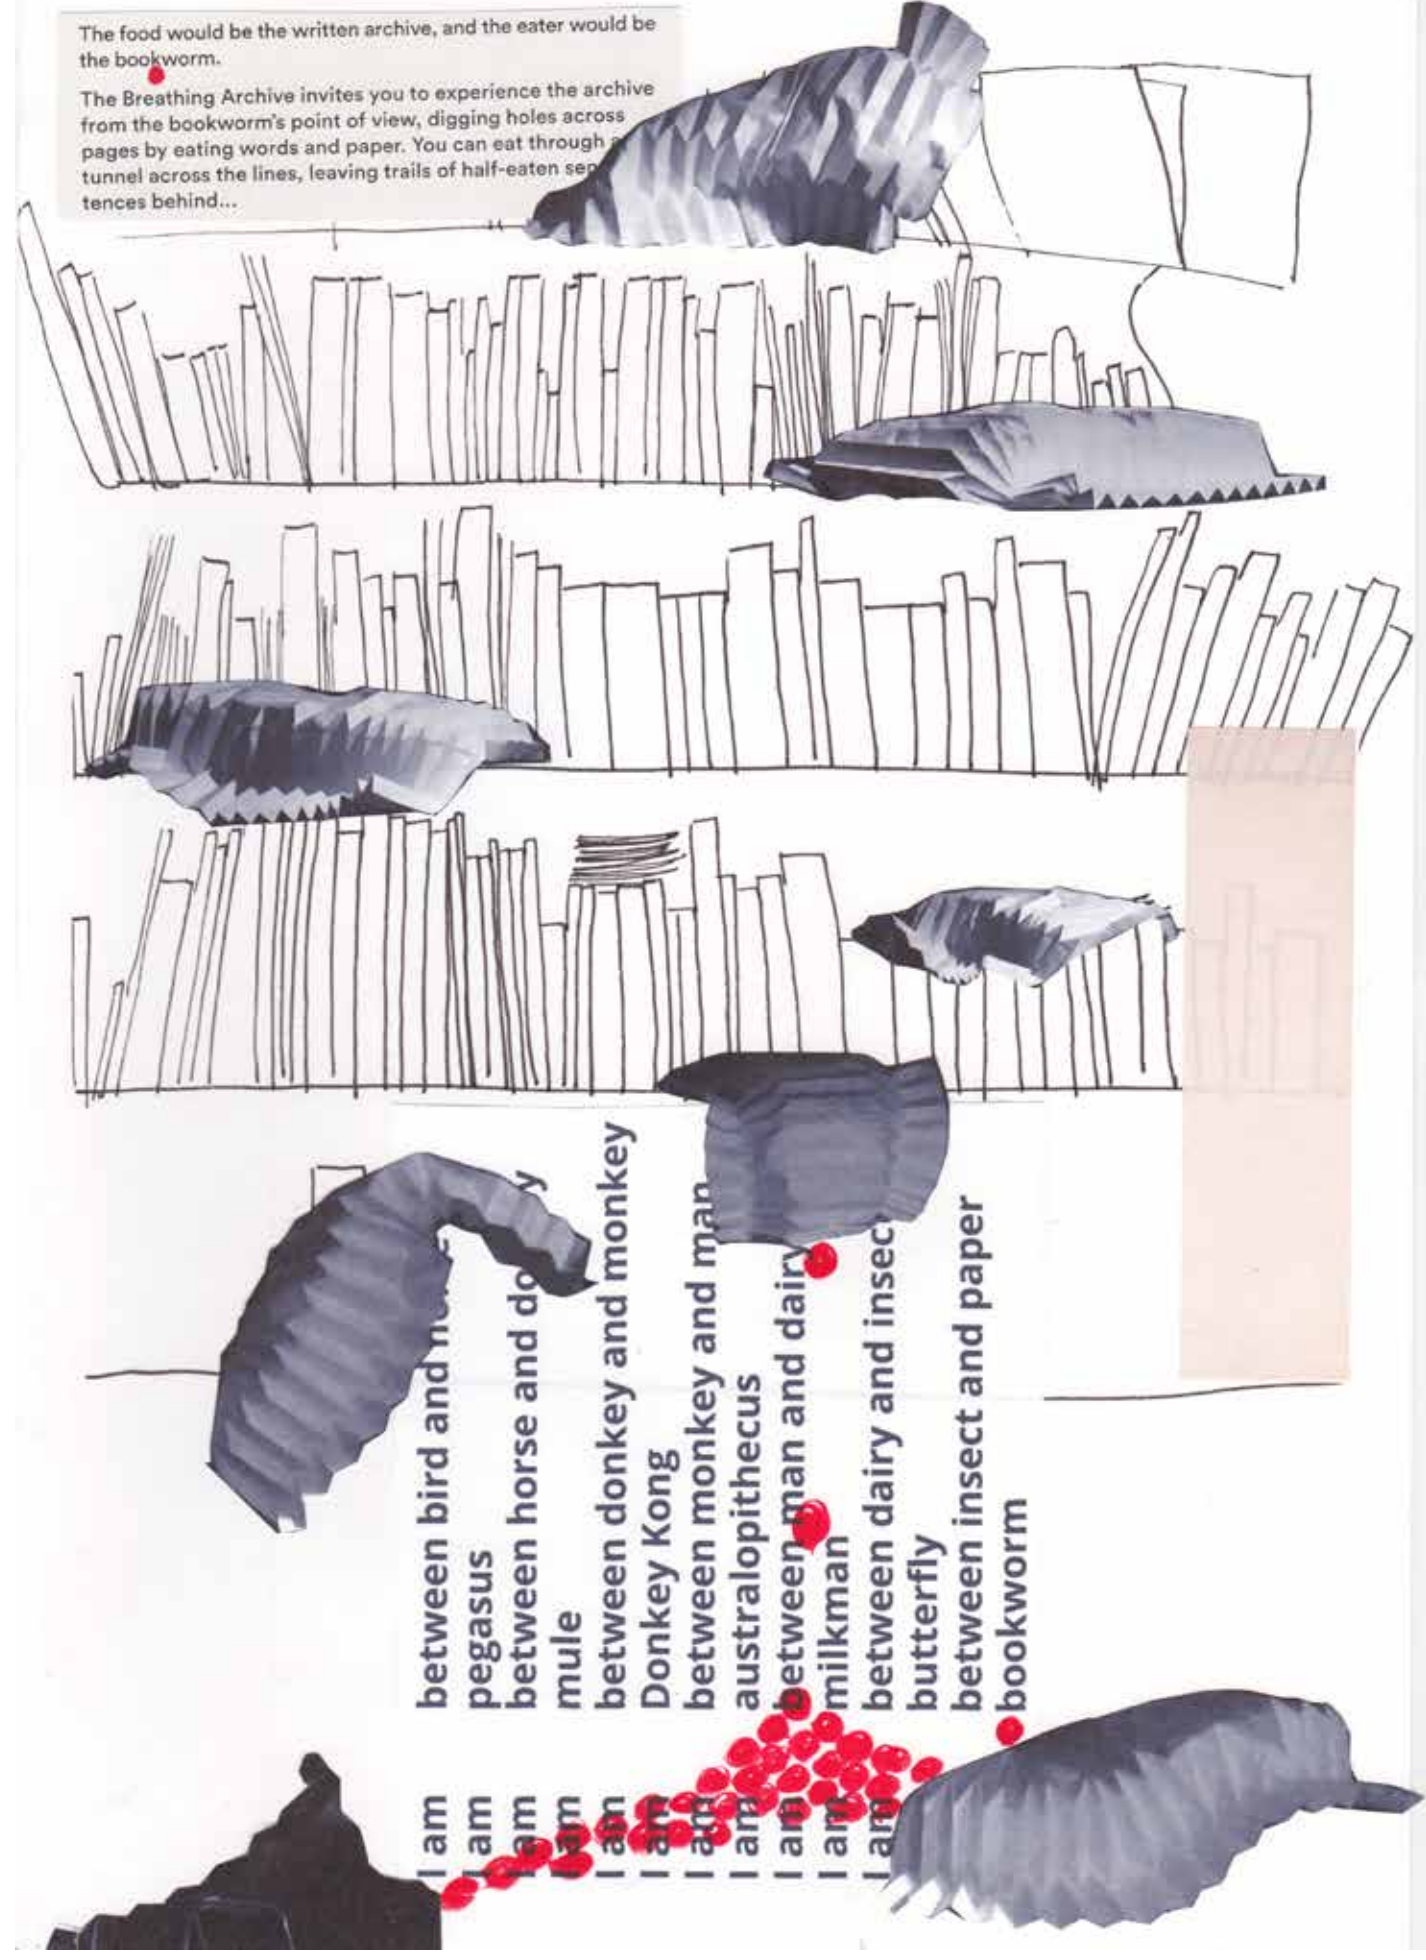 The food would be the written archive, and the eater would be
the bookworm.
The Breathing Archive invites you to experience the archive
from the bookworm's point of view, digging holes across
pages by eating words and paper. You can eat through
tunnel across the lines, leaving trails of half-eaten sen
tences behind...
I am between bird and
I am pegasus
I am between horse and
I am mule
I am between donkey and monkey
I am Donkey Kong
I am between monkey and man
I am australopithecus
I am between man and dairy
I am milkman
I am between dairy and insec
butterfly
between insect and paper
bookworm